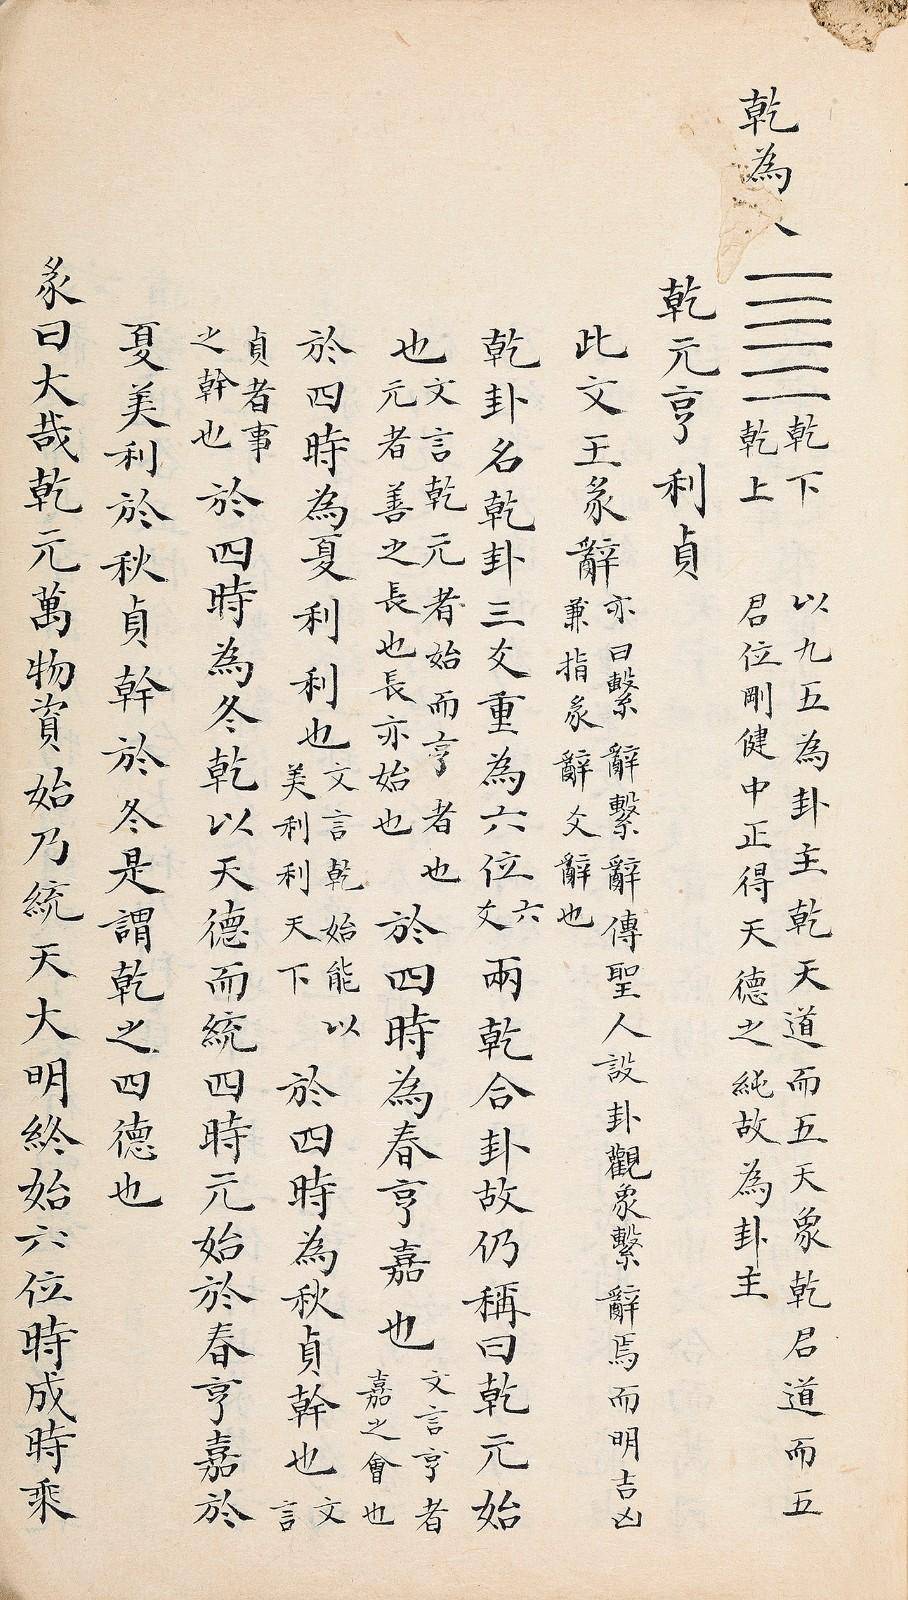 乾為
乾下乾上 以九五為卦主乾天道而五天象乾君道而五君位剛健中正得天德之純故為卦主
乾元亨利貞
此文王彖辭亦曰繫辭繫辭傳聖人設卦觀象繫辭焉而明吉凶兼指彖辭爻辭也
乾卦名乾卦三爻重為六位六爻兩乾合卦故仍稱曰乾元始
也文言乾元者始而亨者也元者善之長也長亦始也於四時為春亨嘉也文言亨者嘉之會也
於四時為夏利利也文言乾始能以美利利天下於四時為秋貞幹也文言
貞者事之幹也於四時為冬乾以天德而統四時元始於春亨嘉於
夏美利於秋貞幹於冬是謂乾之四德也
彖曰大哉乾元萬物資始乃統天大明終始六位時成時乘